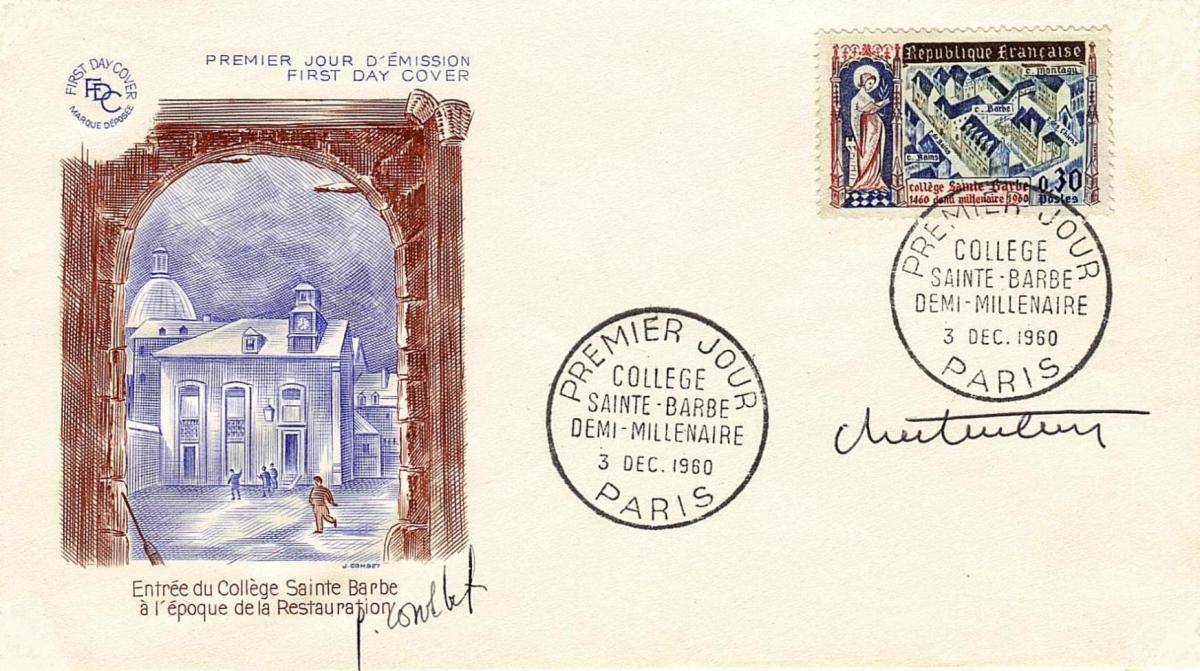 PREMIER JOUR D'ÉMISSION
FIRST DAY COVER
FIRST DAY COVER
FDC
MARQUE DÉPOSÉE
République Française
c. Montagu
c. Barbe
c. Reims
collège Sainte Barbe
1460 demi millenaire 1960
0,30
Postes
PREMIER JOUR
COLLEGE
SAINTE-BARBE
DEMI-MILLENAIRE
3 DEC. 1960
PARIS
PREMIER JOUR
COLLEGE
SAINTE-BARBE
DEMI-MILLENAIRE
3 DEC. 1960
PARIS
J. COMBET
Entrée du Collège Sainte Barbe
à l'époque de la Restauration